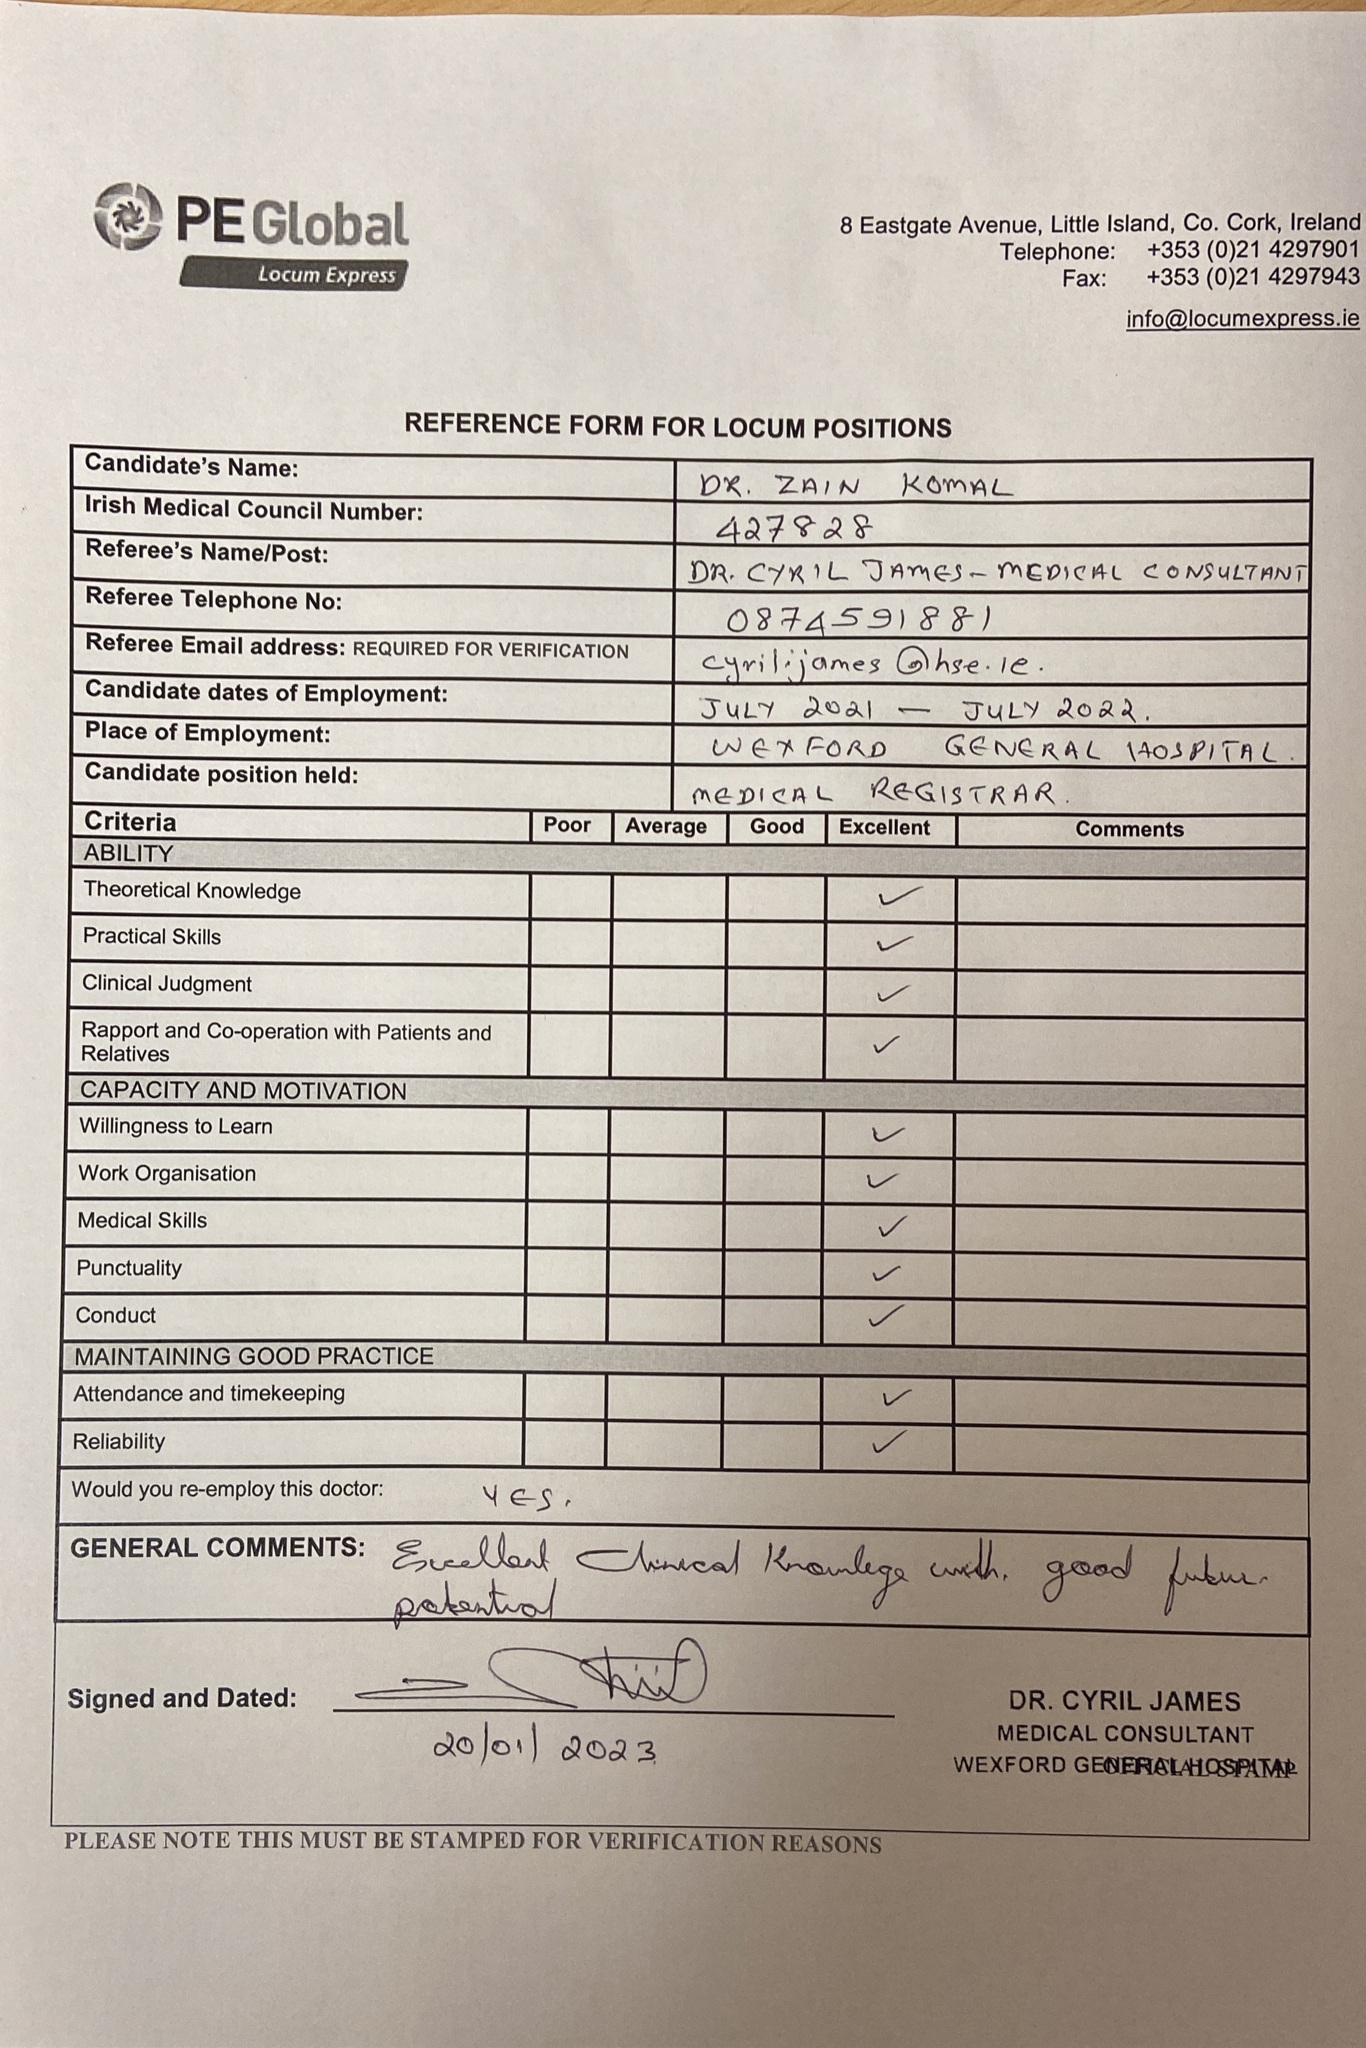 PEGlobal
Locum Express
8 Eastgate Avenue, Little Island, Co. Cork, Ireland
Telephone: +353 (0)21 4297901
Fax: +353 (0)21 4297943
info@locumexpress.ie
REFERENCE FORM FOR LOCUM POSITIONS
Candidate's Name: DR. ZAIN KOMAL
Irish Medical Council Number: 427828
Referee's Name/Post: DR. CYRIL JAMES - MEDICAL CONSULTANT
Referee Telephone No: 0874591881
Referee Email address: REQUIRED FOR VERIFICATION cyril.james@hse.ie.
Candidate dates of Employment: JULY 2021 — JULY 2022.
Place of Employment: WEXFORD GENERAL HOSPITAL.
Candidate position held: MEDICAL REGISTRAR.
Criteria Poor Average Good Excellent Comments
ABILITY
Theoretical Knowledge ✓
Practical Skills ✓
Clinical Judgment ✓
Rapport and Co-operation with Patients and
Relatives ✓
CAPACITY AND MOTIVATION
Willingness to Learn ✓
Work Organisation ✓
Medical Skills ✓
Punctuality ✓
Conduct ✓
MAINTAINING GOOD PRACTICE
Attendance and timekeeping ✓
Reliability ✓
Would you re-employ this doctor: YES.
GENERAL COMMENTS: Excellent Clinical Knowlege with good future
potential
Signed and Dated:
20/01/2023
DR. CYRIL JAMES
MEDICAL CONSULTANT
WEXFORD GENERAL HOSPITAL
OFFICIAL STAMP
PLEASE NOTE THIS MUST BE STAMPED FOR VERIFICATION REASONS